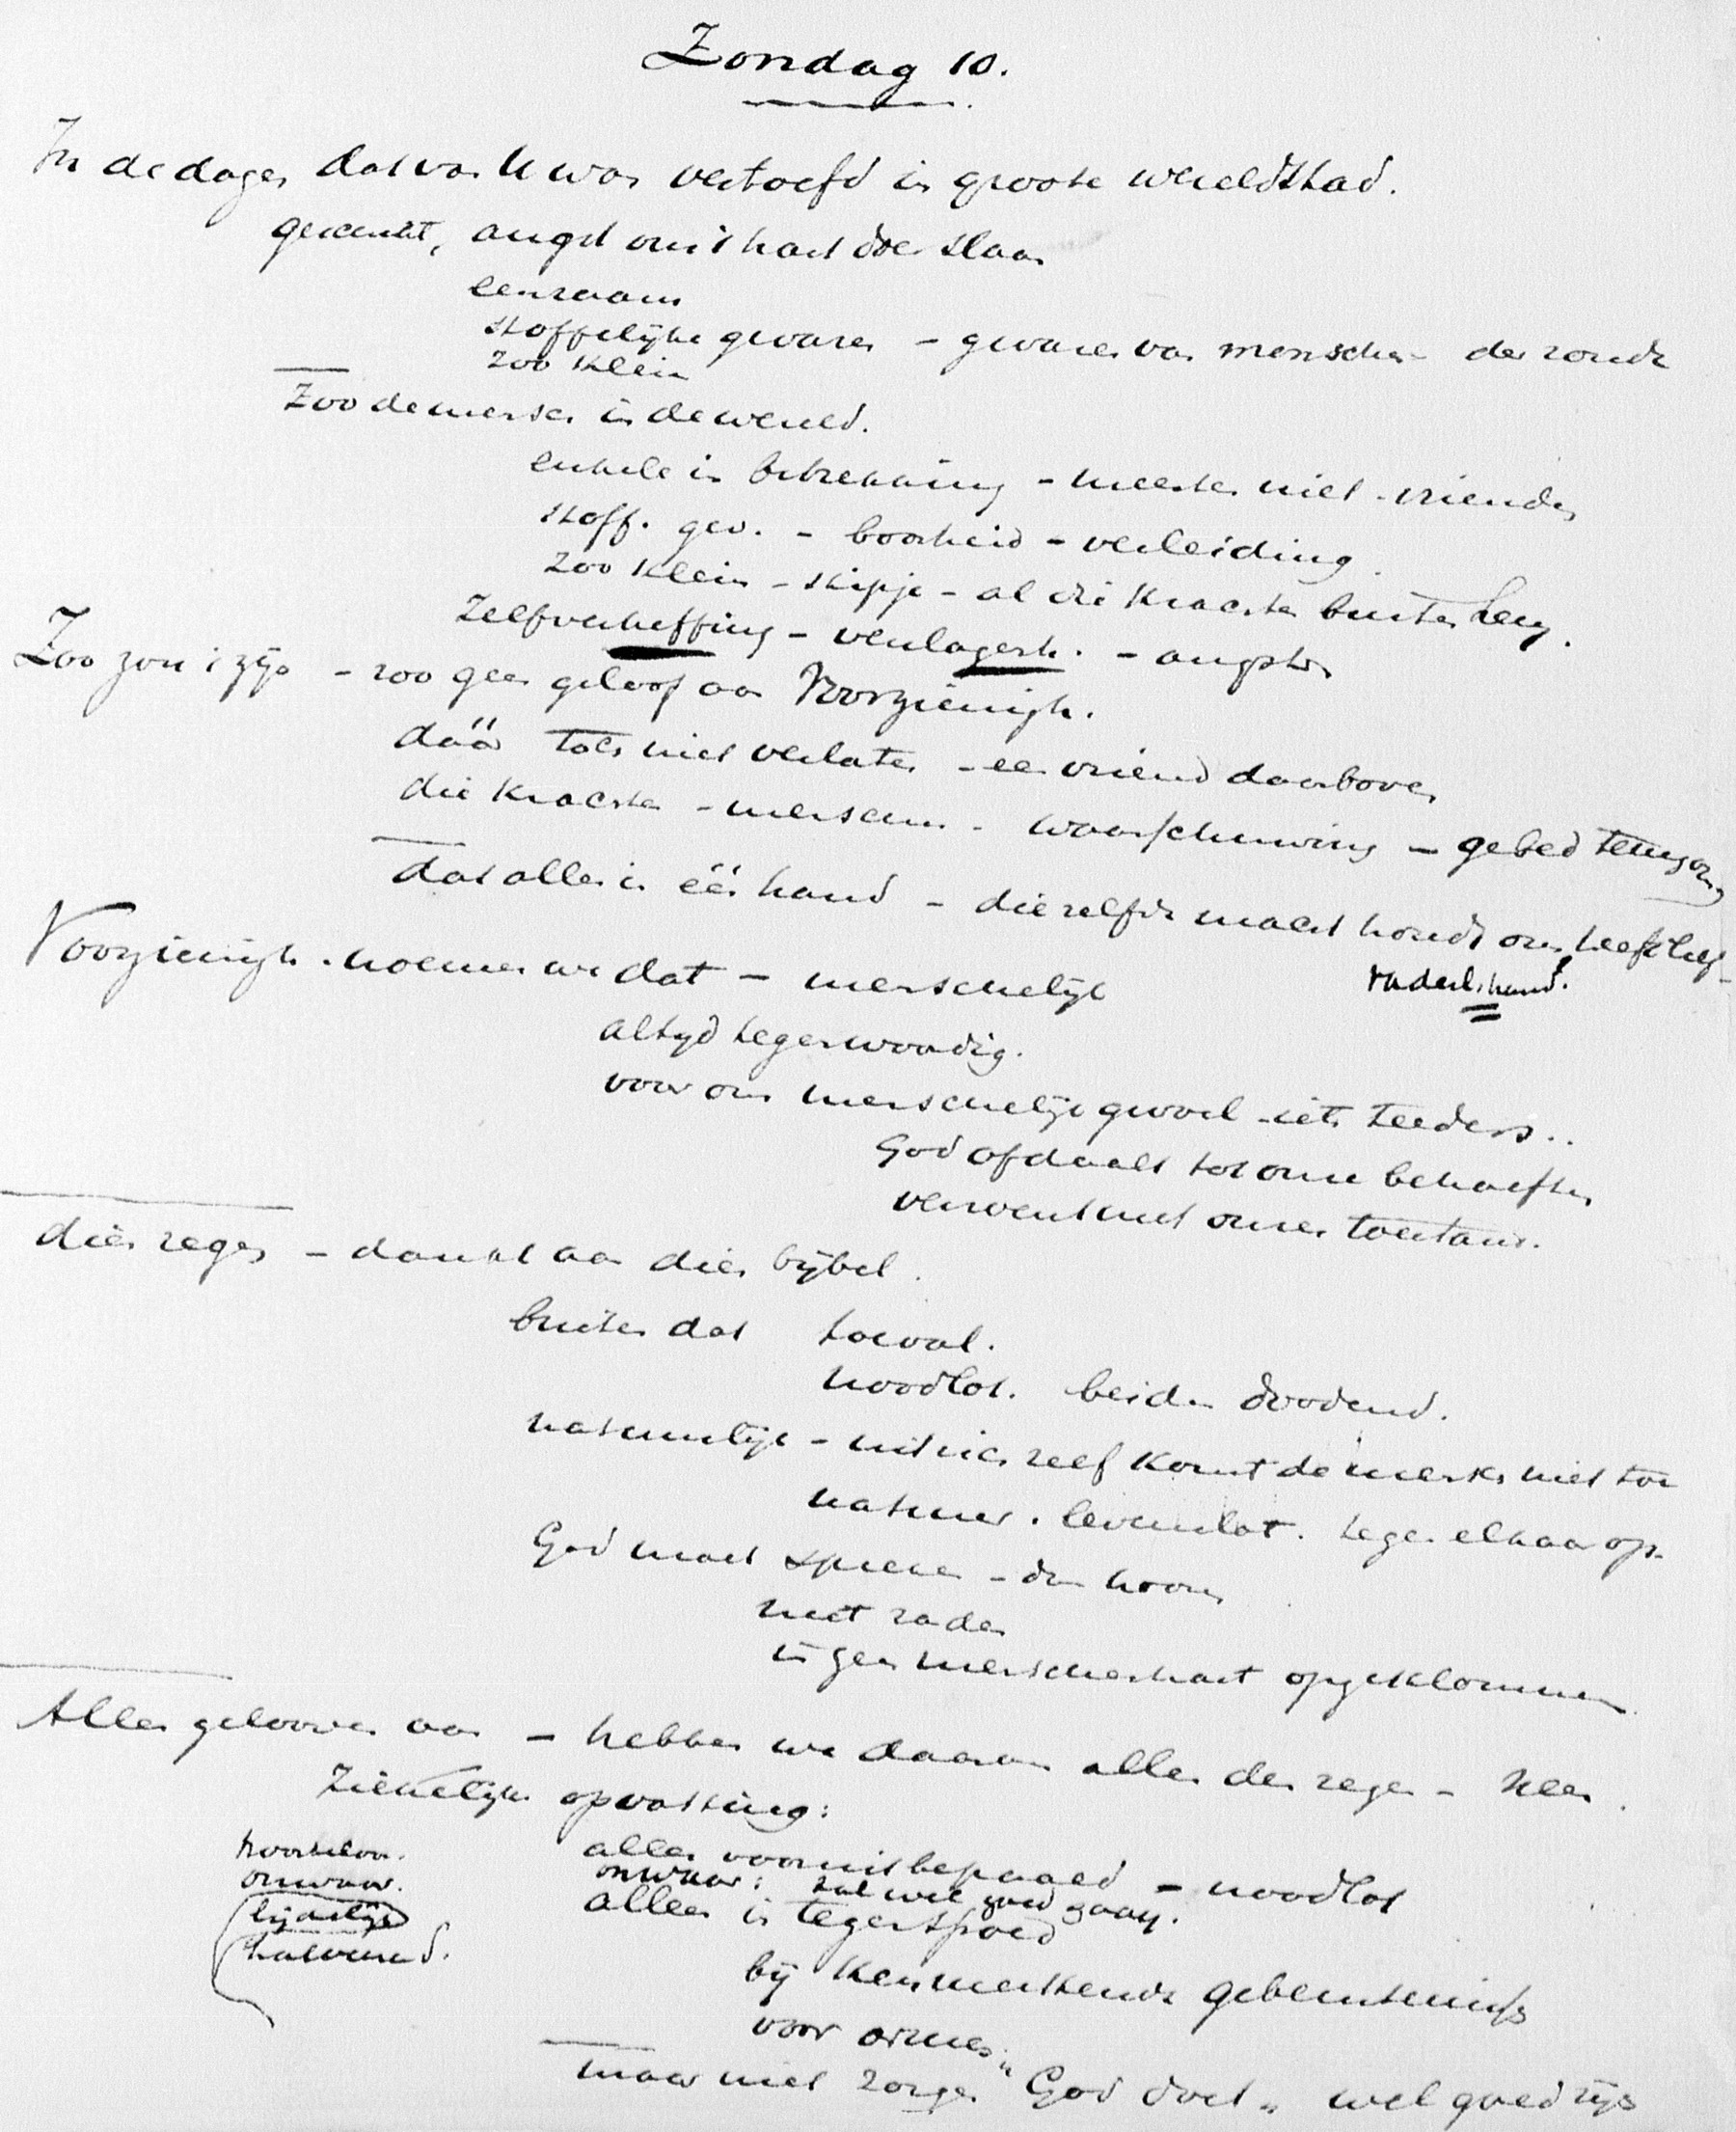 Zondag 10.
In de dagen dat van U was vertoefd in groote wereldstad.
angst om 't hart doen slaan
eenzaam
stoffelijke gevaren - gevaren van menschen - der zonde
zoo klein
Zoo de mensch in de wereld.
enkele in betrekking - meesten niet - vrienden
stoff. gev. - boosheid - verleiding.
zoo klein - stipje - al die krachten buiten
Zelfverheffing - verlagesh. - angsten
Zoo zou 't zijn - zoo geen geloof aan Voorzienigh.
dan toch niet verlaten - een vriend daarboven
die krachten - menschen - waarschuwing - gebed
dat alles in één hand - diezelfde macht houdt ons
vaderhand!
Voorzienigh. noemen we dat - menschelijk
altijd tegenwoordig.
voor ons menschelijk gevoel - iets teeders..
God afdaalt tot onze behoeften
verwent met onzen toestand.
dien zegen - dankt aan dien bijbel.
buiten dat toeval.
noodlot. beiden doodend.
natuurlijk - uit zich zelf komt de mensch niet toe
natuur. levenslot. tegen elkaar op.
God moet spreken - den hoon
niet raden
in geen menschenhart opgeklommen
Allen gelooven aan - hebben we daarom allen den zegen - Neen.
Ziekelijke opvatting:
alles vooruitbepaald - noodlot
onwaar: zal wel goed gaan.
onwaar.
lijdelijk
halveerend.
alleen in tegenspoed
bij kenmerkende gebeurtenissen
voor armen
maar niet zorgen "God doet" wel goed zijn